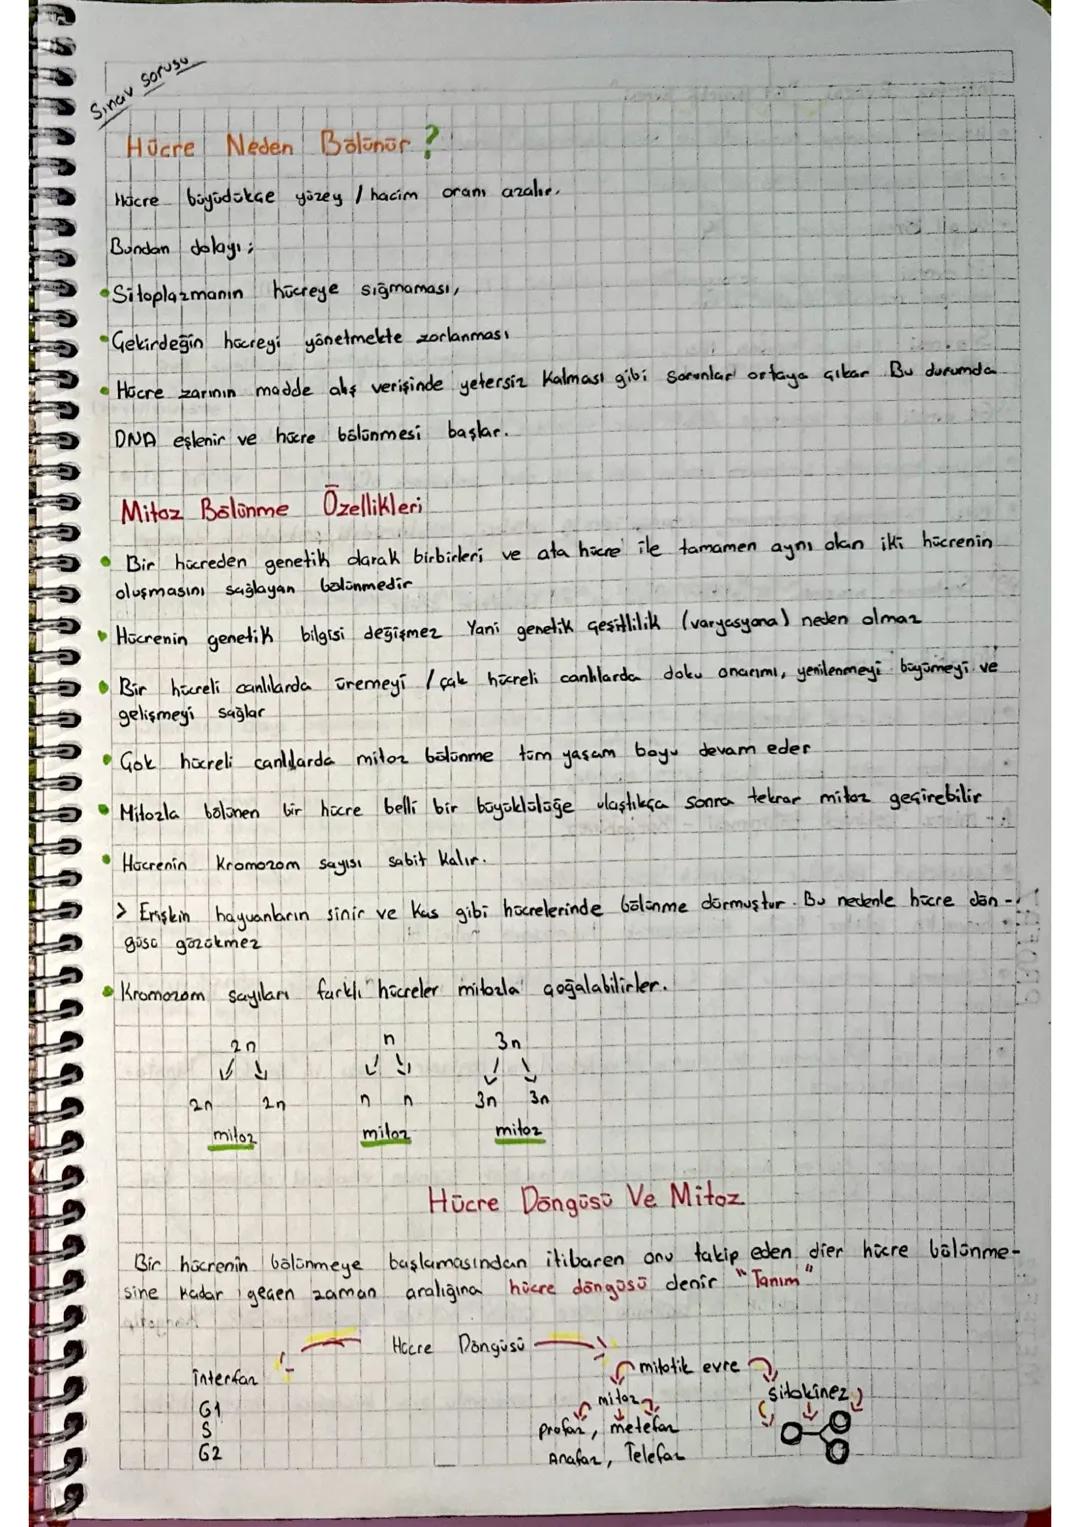 Sınav sorusu
Hücre Neden Bölünür ?
Hücre büyüdükçe yüzey / hacim oranı azalır.
Bundan dolayı ;
• Sitoplazmanın hücreye sığmaması,
• Çekirdeğin hücreyi yönetmekte zorlanması
• Hücre zarının madde alış verişinde yetersiz kalması gibi sorunlar ortaya çıkar Bu durumda
DNA eşlenir ve hücre bölünmesi başlar.
Mitoz Bölünme Özellikleri
• Bir hücreden genetik olarak birbirleri ve ata hücre ile tamamen aynı olan iki hücrenin
oluşmasını sağlayan bölünmedir
• Hücrenin genetik bilgisi değişmez Yani genetik çeşitlilik (varyasyona) neden olmaz
• Bir hücreli canlılarda üremeyi / çok hücreli canlılarda doku onarımı, yenilenmeyi büyümeyi ve
gelişmeyi sağlar
• Çok hücreli canlılarda mitoz bölünme tüm yaşam boyu devam eder
• Mitozla bölünen bir hücre belli bir büyüklülüğe ulaştıkça sonra tekrar mitoz geçirebilir
• Hücrenin Kromozom sayısı sabit kalır.
> Erişkin hayvanların sinir ve kas gibi hücrelerinde bölünme durmuştur. Bu nedenle hücre dön-
güsü gözükmez
• Kromozom sayıları farklı hücreler mitozla çoğalabilirler.
2n n 3n
2n 2n n n 3n 3n
mitoz mitoz mitoz
Hücre Döngüsü Ve Mitoz
Bir hücrenin bölünmeye başlamasından itibaren onu takip eden dier hücre bölünme-
sine kadar geçen zaman aralığına hücre döngüsü denir "Tanım"
Hücre Döngüsü
interfaz
G1
S
G2
mitotik evre
mitoz
profaz, metefaz
Anafaz, Telefaz
sitokinez